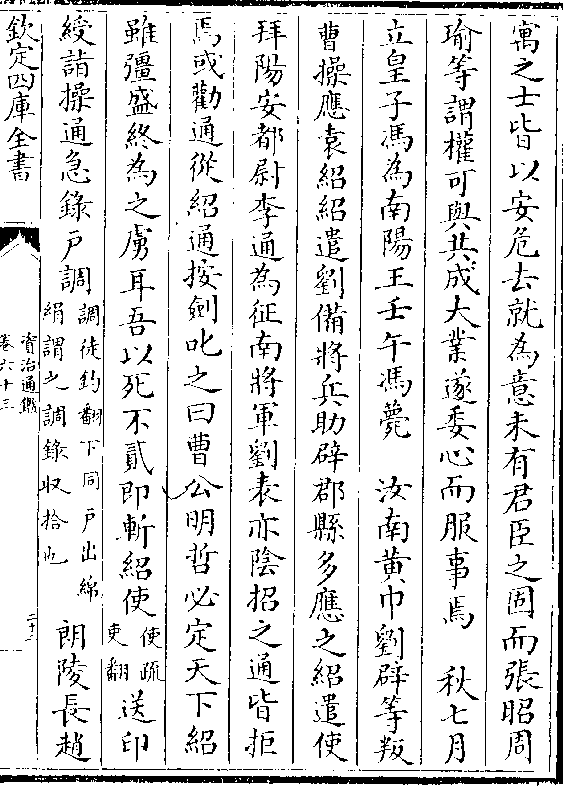 寓之士皆以安危去就為意未有君臣之固而張昭周
瑜等謂權可與共成大業遂委心而服事焉　秋七月
立皇子馮為南陽王壬午馮薨　汝南黄巾劉辟等叛
曹操應袁紹紹遣劉備將兵助辟郡縣多應之紹遣使
拜陽安都尉李通為征南將軍劉表亦陰招之通皆拒
焉或勸通從紹通按劍叱之曰曹公明哲必定天下紹
雖彊盛終為之虜耳吾以死不貳即斬紹使使疏吏翻送印
綬詣操通急錄戶調調徒釣翻下同戶出綿絹謂之調錄収拾也朗陵長趙
欽定四庫全書
資治通鑑
卷六十三
二十二